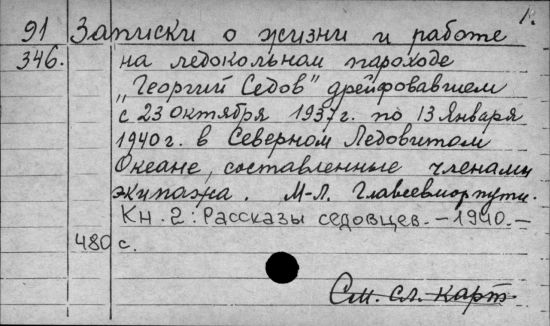 1.
91 Записки о жизни и работе
346. на ледокольном пароходе
„Георгий Седов" дрейфовавшем
с 23 октября 1937 г. по 13 Января
1940 г. в Северном Ледовитом
Океане, составленные членами
экипажа. М-Л. Главсевморпути.
Кн. 2: Рассказы седовцев. – 1940. –
480 с.
См. сл. карт.